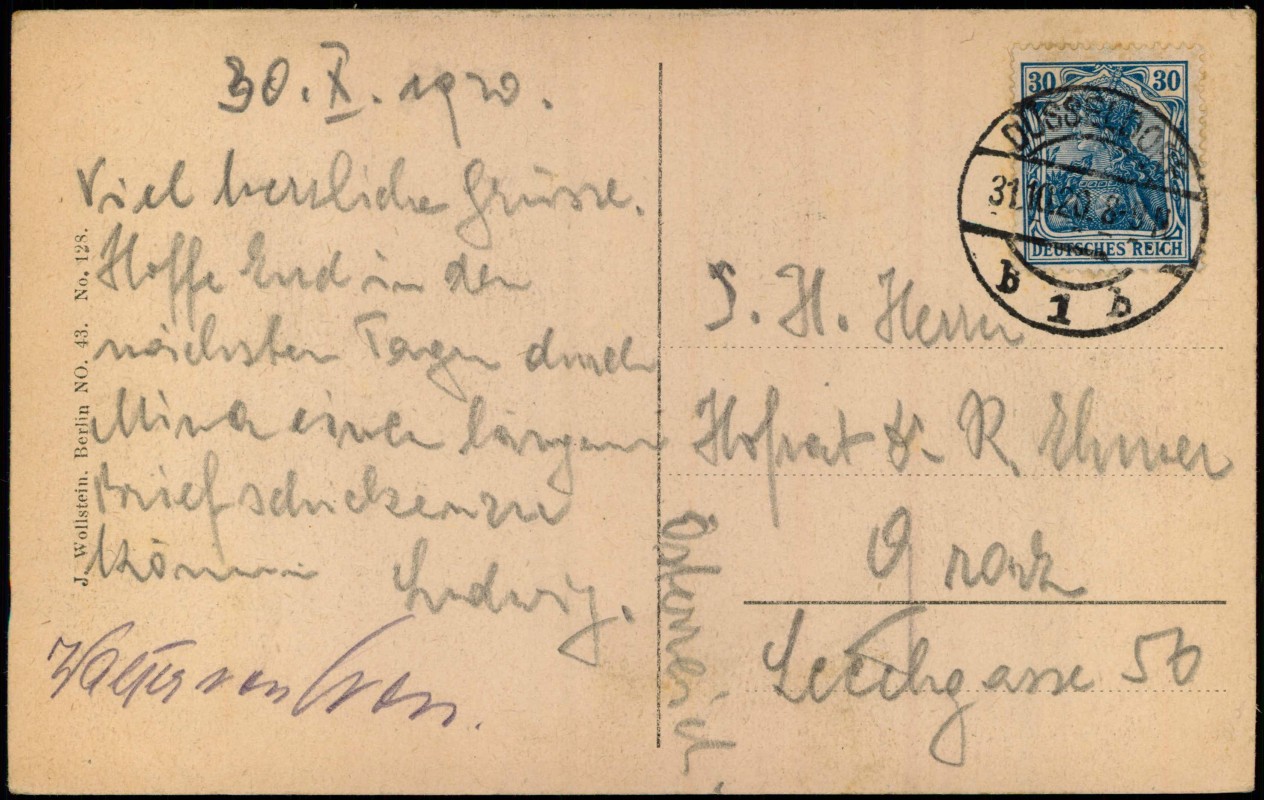 30. X. 1920.
Viel herzliche Grüsse.
Hoffe Euch in den
nächsten Tagen durch
einen längern
Brief schicken zu
können
Ludwig.
Walter von
J. Wollstein. Berlin NO. 43. No. 128.
30 30
DEUTSCHES REICH
DÜSSELDORF
31.10.20. 8-9 N
b 1 b
S. H. Herrn
Hofrat Dr. R.
Graz
Leechgasse 56
Österreich.